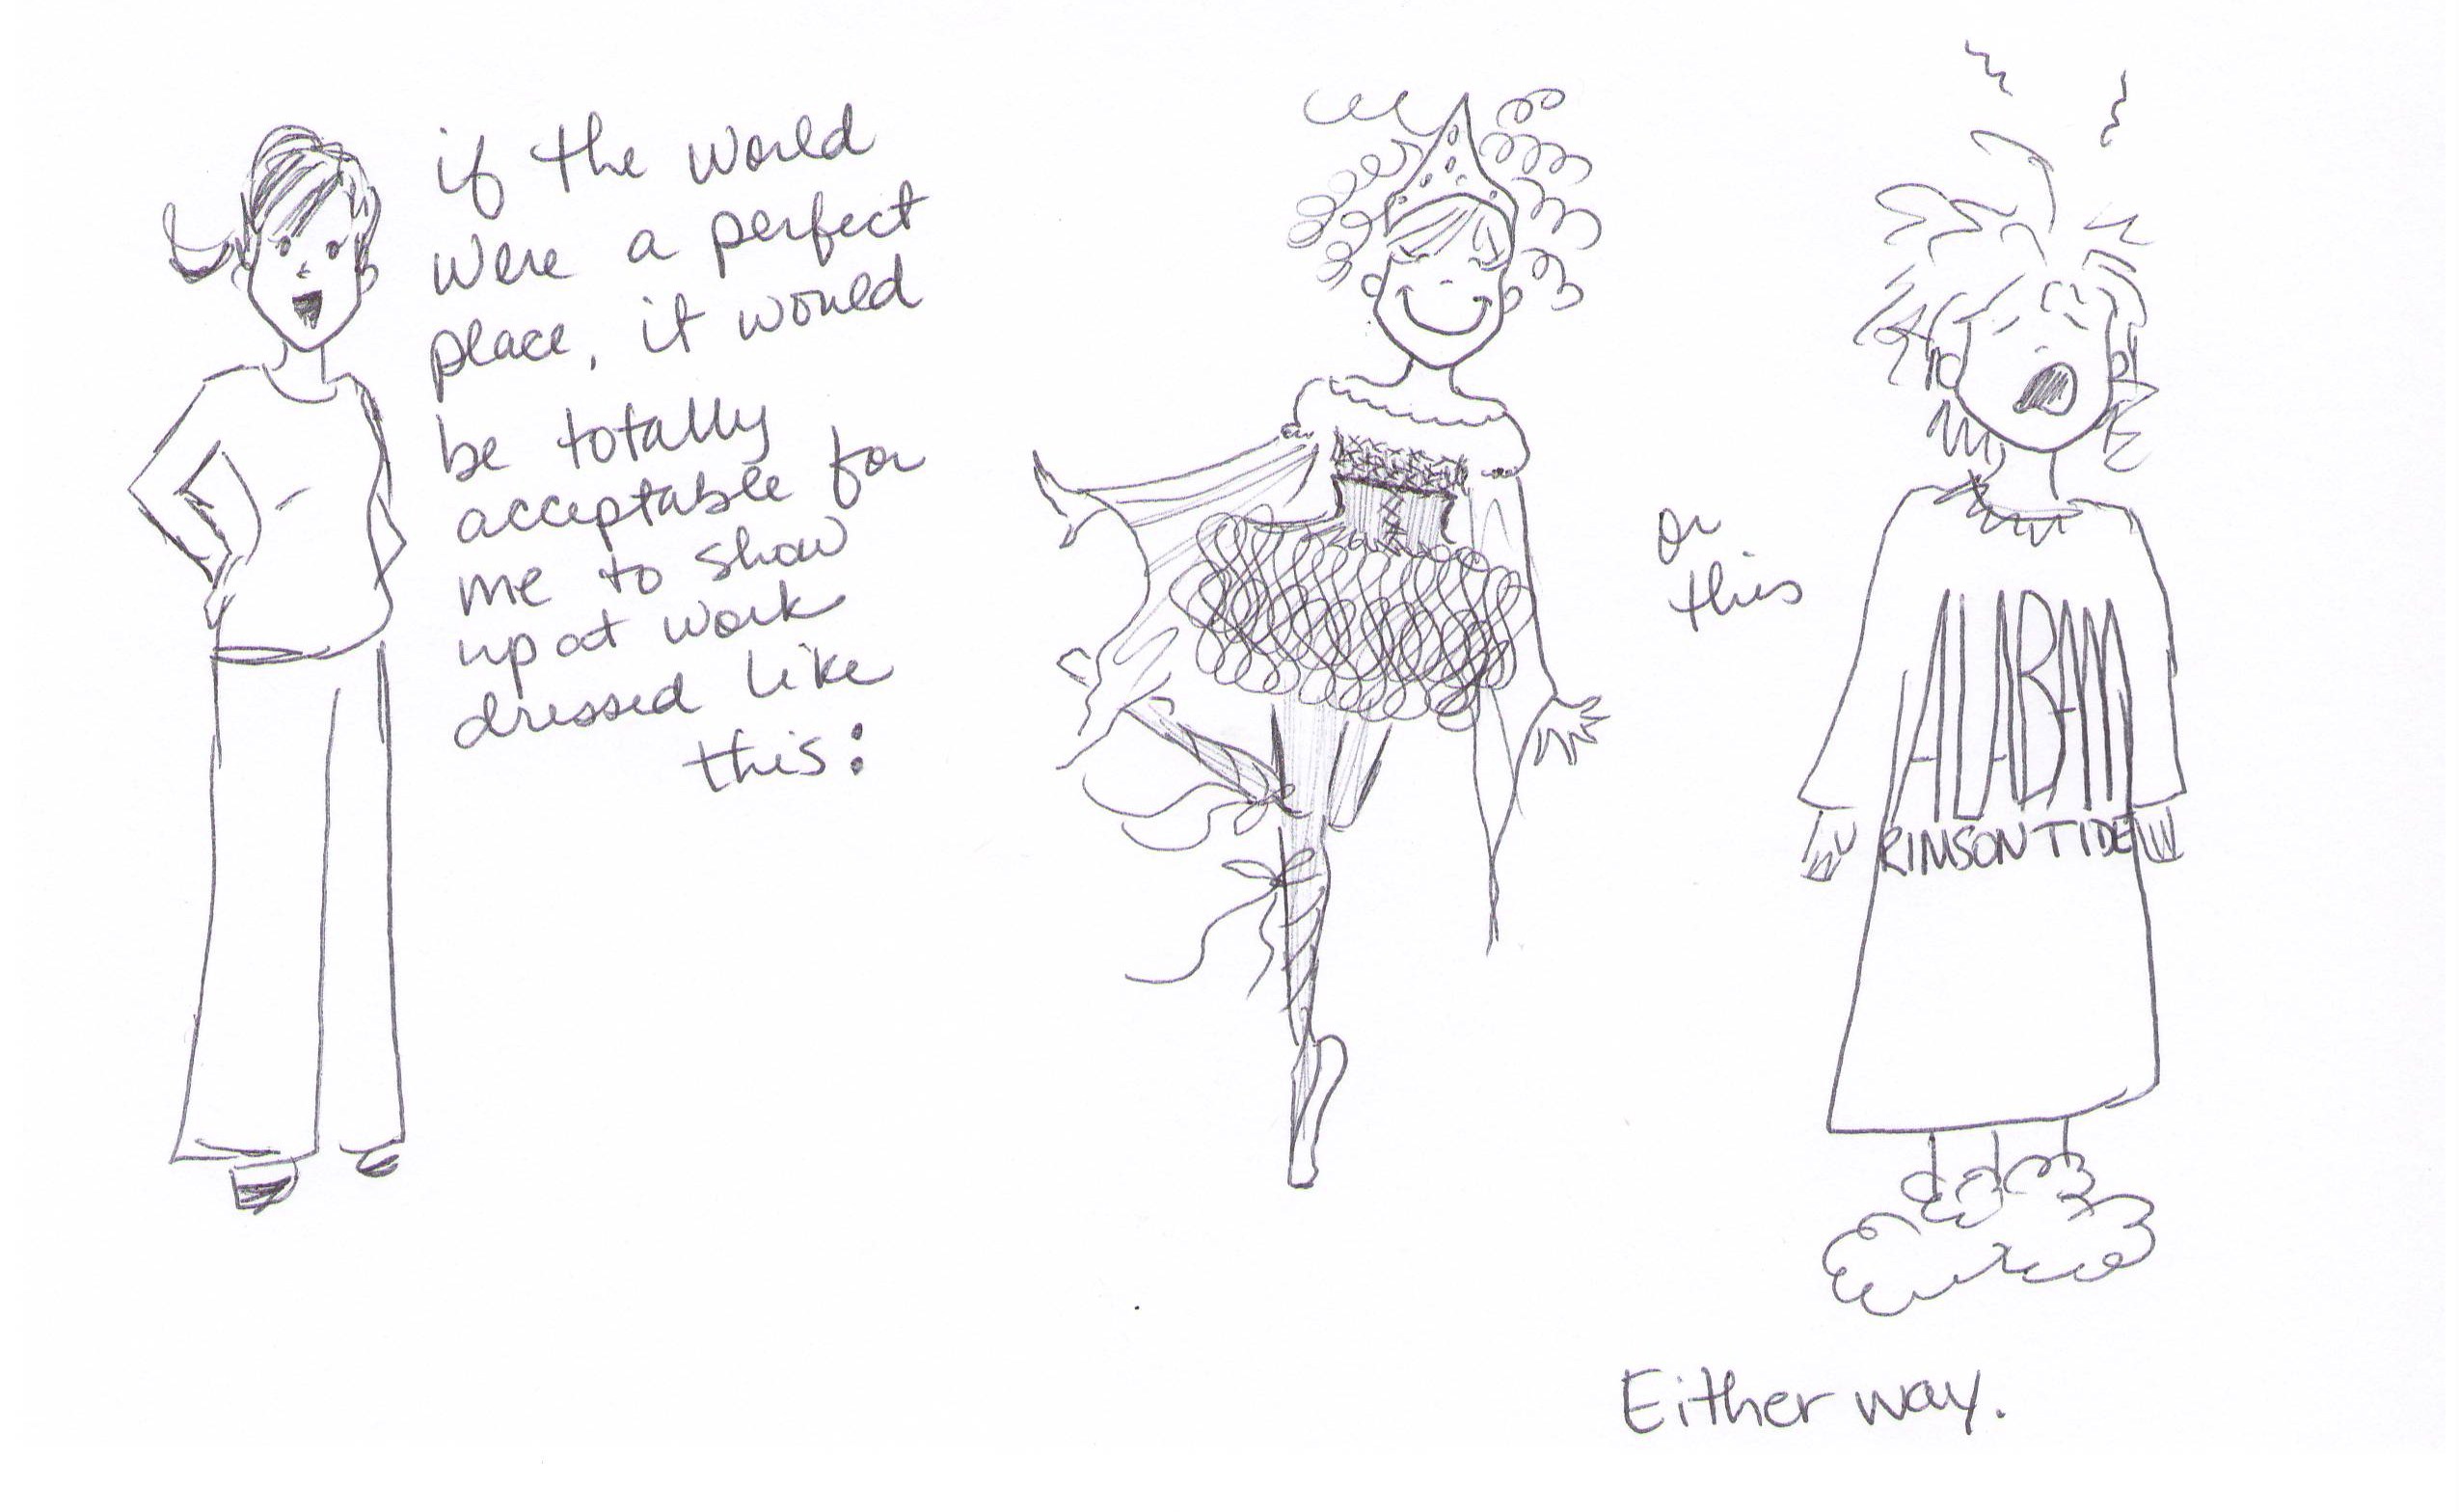 if the world
were a perfect
place, it would
be totally
acceptable for
me to show
up at work
dressed like
this:
or
this
ALABAM
RIMSON TIDE
Either way.